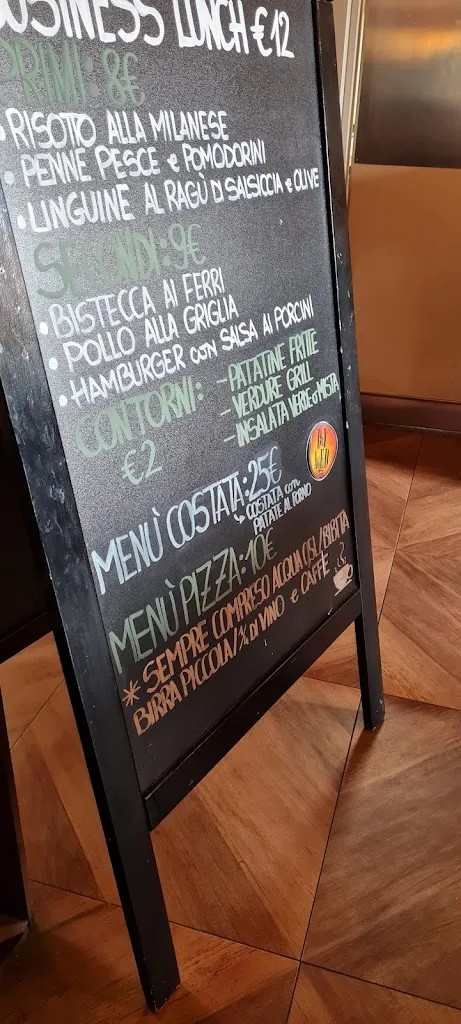 BUSINESS LUNCH €12
PRIMI: 8€
• RISOTTO ALLA MILANESE
• PENNE PESCE e POMODORINI
• LINGUINE AL RAGÙ DI SALSICCIA e OLIVE
SECONDI: 9€
• BISTECCA AI FERRI
• POLLO ALLA GRIGLIA
• HAMBURGER con SALSA AI PORCINI
CONTORNI: - PATATINE FRITTE
€2 - VERDURE GRILL
- INSALATA VERDE o MISTA
MENÙ COSTATA: 25€
COSTATA con
PATATE AL FORNO
MENÙ PIZZA: 10€
* SEMPRE COMPRESO ACQUA 0,5L/BIBITA
BIRRA PICCOLA/¼ DI VINO e CAFFÈ